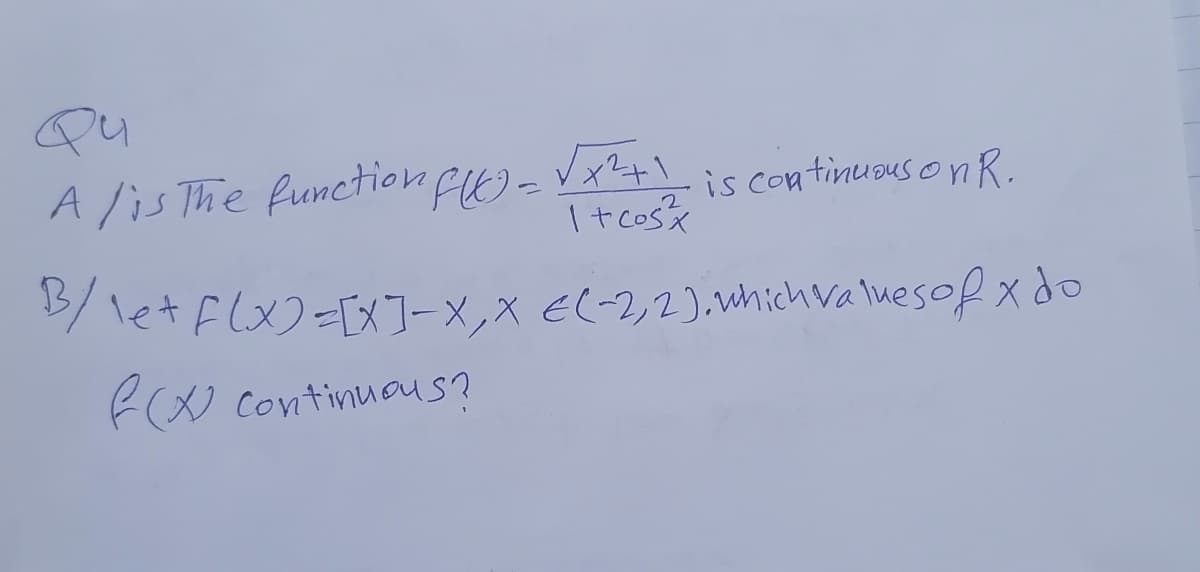 Q4
A/is The function f(t) = √x²+1 / 1+cos²x is continuous on R.
B/ let F(x)=[x]-x, x ∈(-2,2). which values of x do
f(x) continuous?